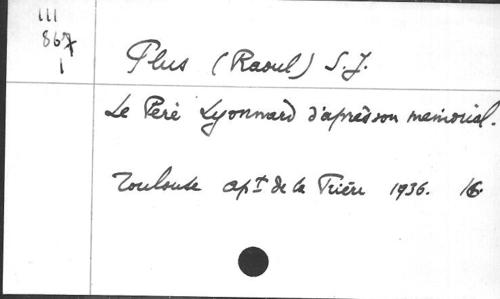 III
867
1
Plus (Raoul) S.J.
Le Père Lyonnard d'après son memorial.
Toulouse apt de la Prière 1936. 16.